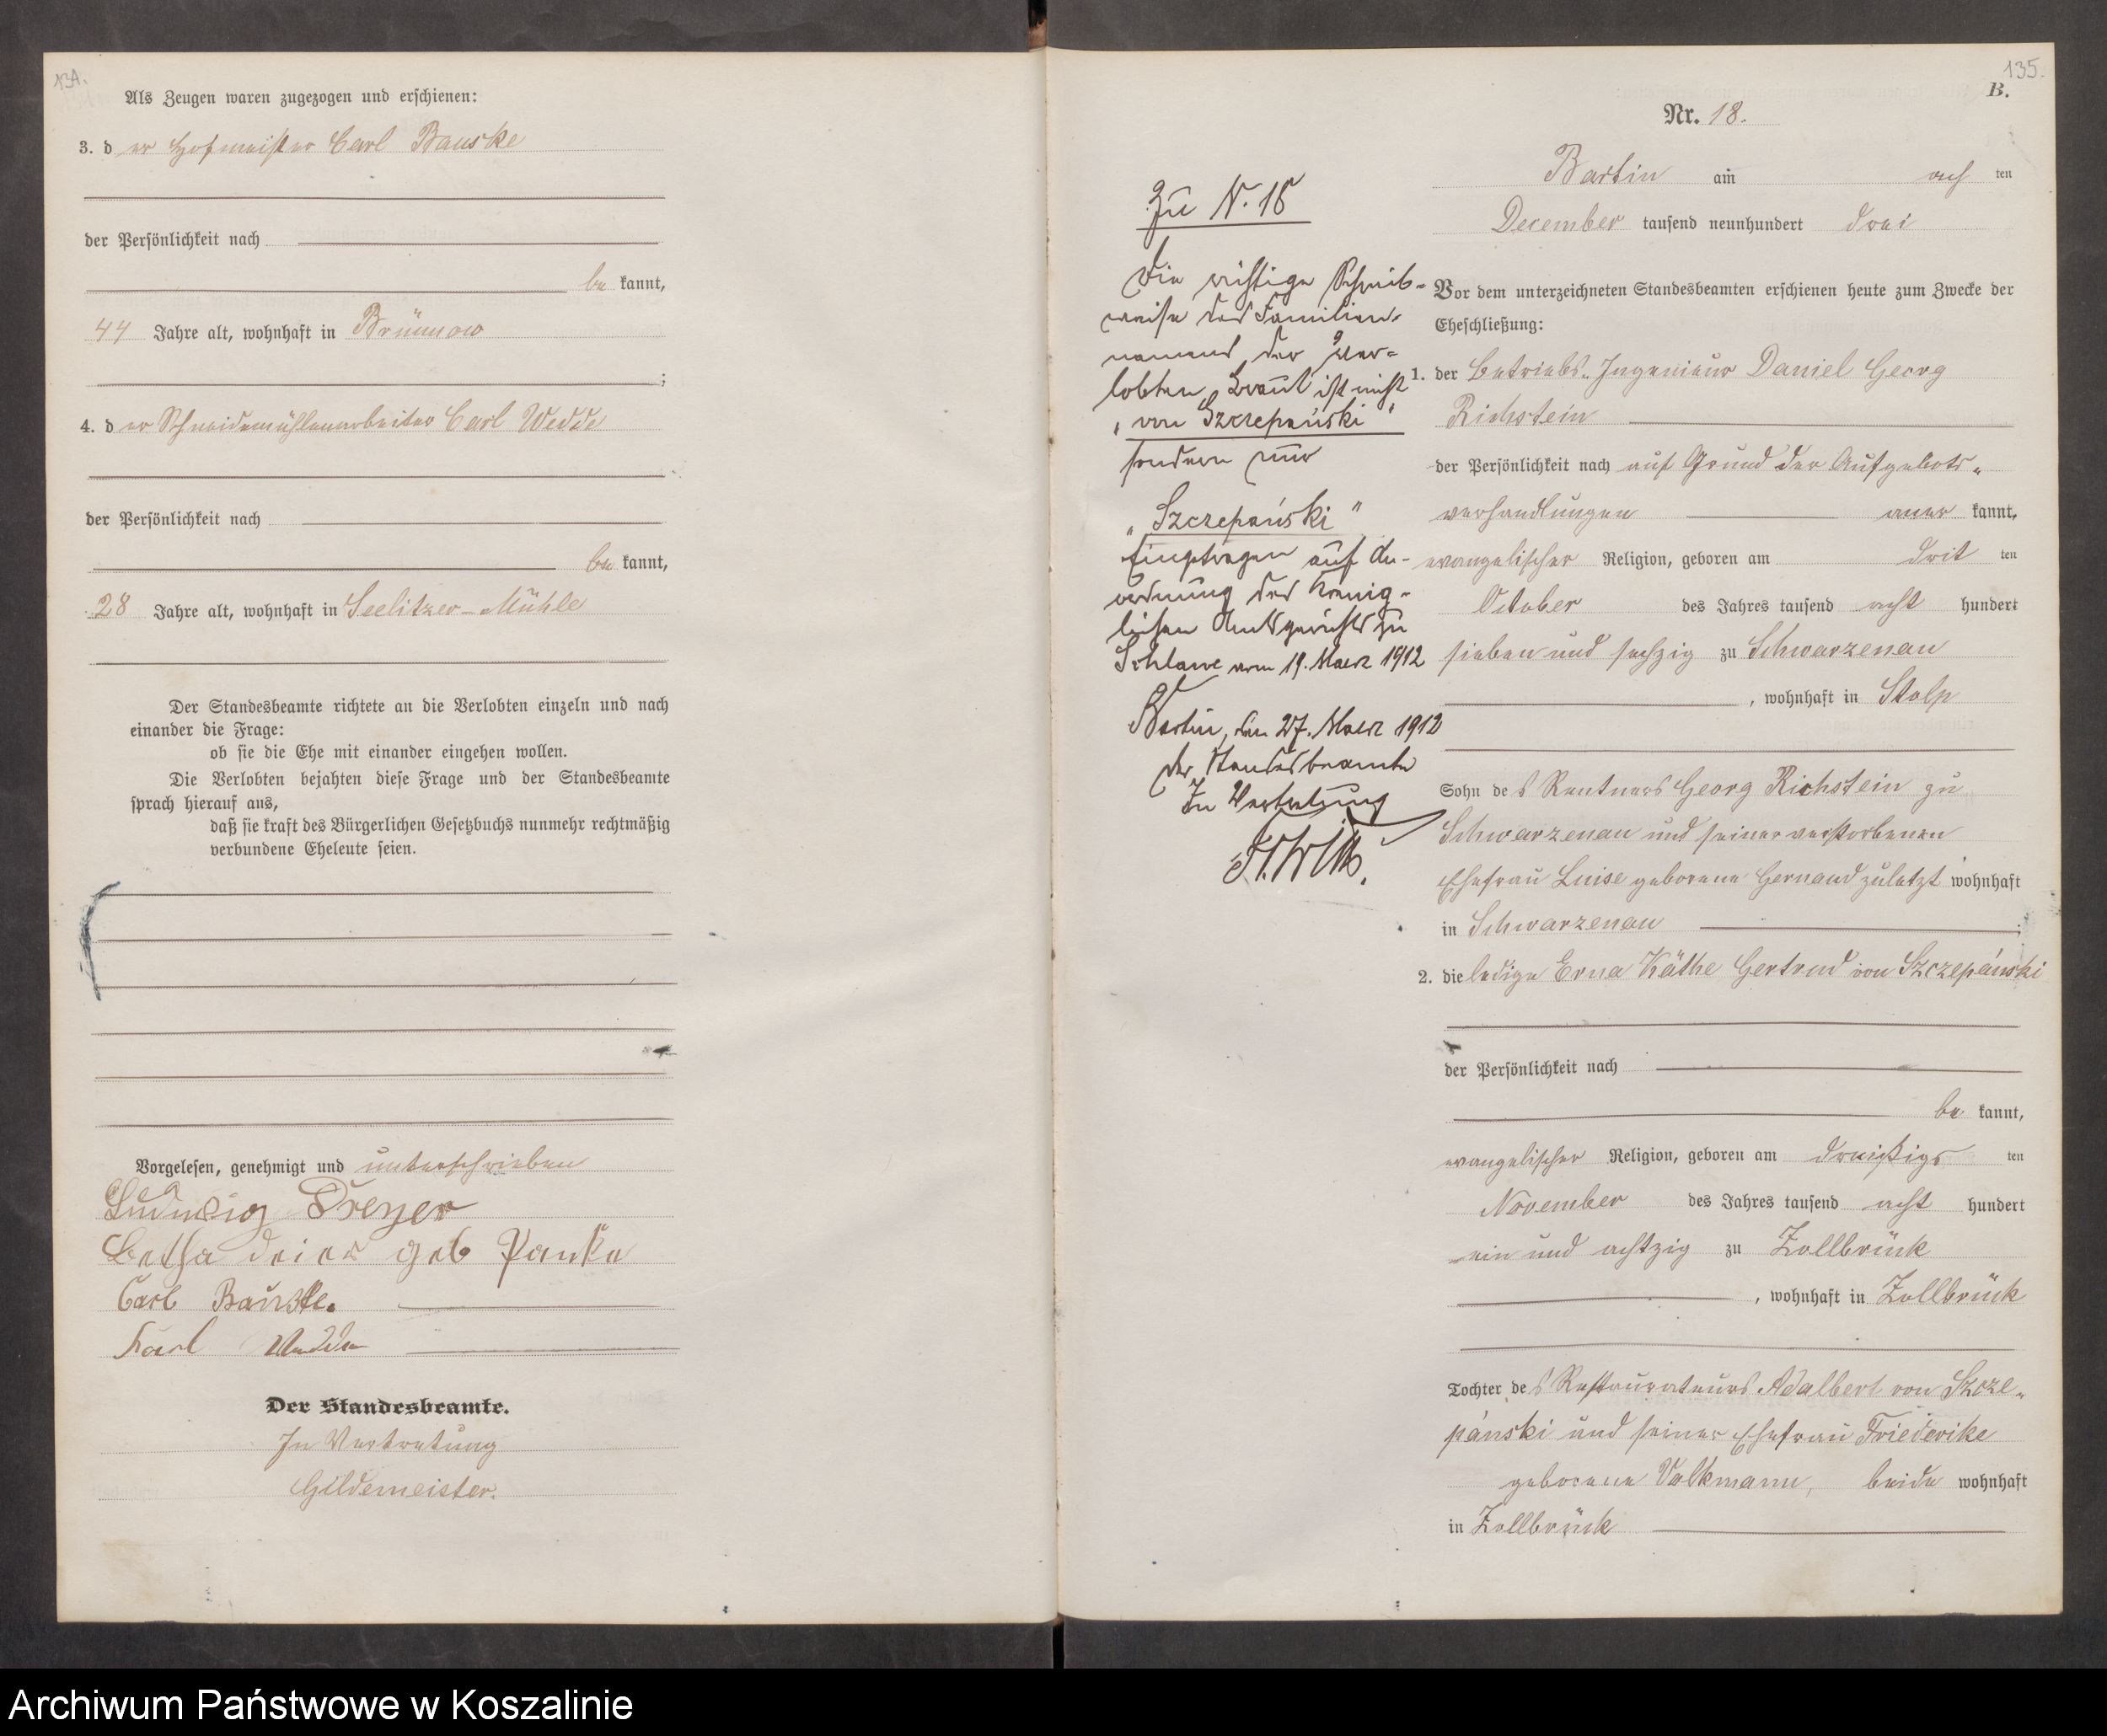 134.
Als Zeugen waren zugezogen und erschienen:
3. d er Hofmeister Carl Bauske
der Persönlichkeit nach
be kannt,
44 Jahre alt, wohnhaft in Brünnow
;
4. d er Schneidemühlenarbeiter Carl Wedde
der Persönlichkeit nach
be kannt,
28 Jahre alt, wohnhaft in Seelitzer-Mühle
Der Standesbeamte richtete an die Verlobten einzeln und nach
einander die Frage:
ob sie die Ehe mit einander eingehen wollen.
Die Verlobten bejahten diese Frage und der Standesbeamte
sprach hierauf aus,
daß sie kraft des Bürgerlichen Gesetzbuchs nunmehr rechtmäßig
verbundene Eheleute seien.
Vorgelesen, genehmigt und unterschrieben
Ludwig Dreyer
geb Panke
Carl Bauske.
Karl Wedde
Der Standesbeamte.
In Vertretung
Gildemeister.
135.
B.
Nr. 18.
Bartin am ach ten
December tausend neunhundert drei
Vor dem unterzeichneten Standesbeamten erschienen heute zum Zwecke der
Eheschließung:
1. der Betriebs-Ingenieur Daniel Georg
Richstein
der Persönlichkeit nach auf Grund der Aufgebots-
verhandlungen aner kannt,
evangelischer Religion, geboren am drit ten
October des Jahres tausend acht hundert
sieben und sechzig zu Schwarzenau
, wohnhaft in Stolp
Sohn de s Rentners Georg Richstein zu
Schwarzenau und seiner verstorbenen
Ehefrau Luise geborene Gernand zuletzt wohnhaft
in Schwarzenau ;
2. die ledige Erna Käthe Gertrud von Szczepánski
der Persönlichkeit nach
be kannt,
evangelischer Religion, geboren am dreißigs ten
November des Jahres tausend acht hundert
ein und achtzig zu Zollbrück
, wohnhaft in Zollbrück
Tochter de s Restaurateurs Adalbert von Szcze-
pánski und seiner Ehefrau Friederike
geborene Volkmann, beide wohnhaft
in Zollbrück
Zu N. 18
Die richtige Schreib-
weise des Familien-
namens der Ver-
lobten Braut ist nicht
"von Szczepański"
sondern nur
"Szczepański"
Eingetragen auf An-
ordnung des König-
lichen Amtsgerichts zu
Schlawe vom 19. Maerz 1912
Bartin, den 27. Maerz 1912
Der Standesbeamte
In Vertretung
Archiwum Państwowe w Koszalinie